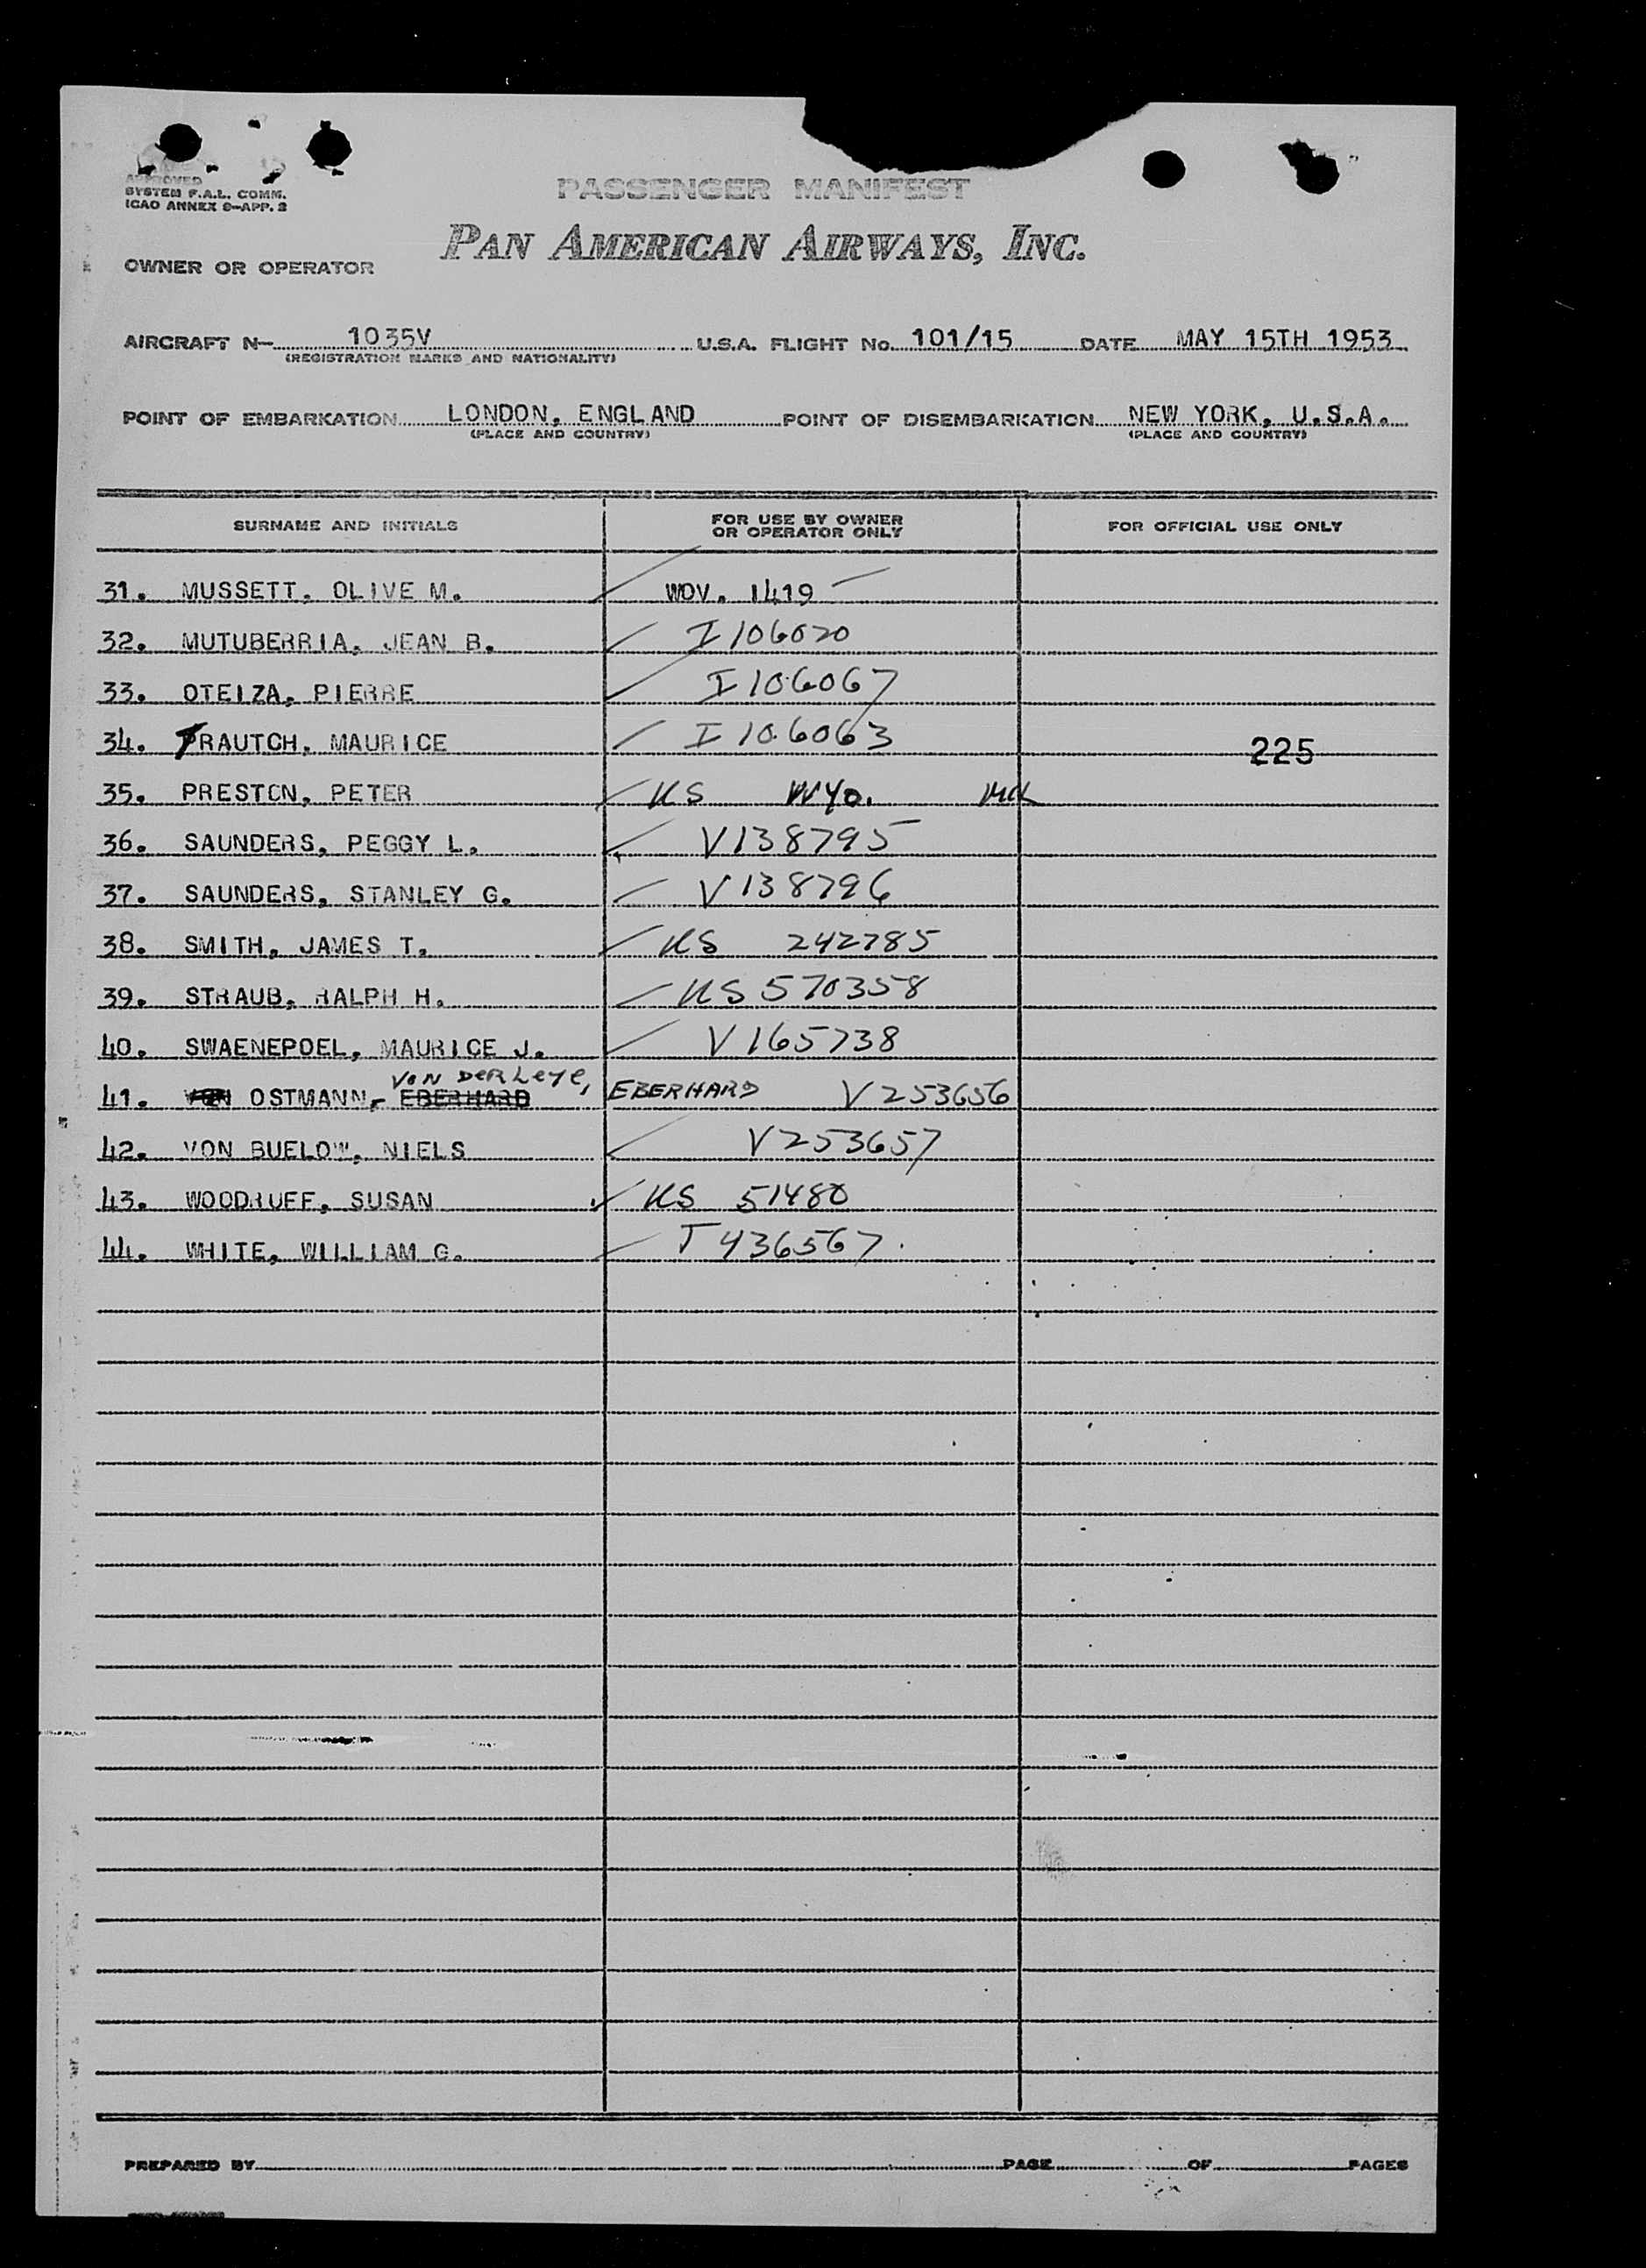 APPROVED
SYSTEM F.A.L. COMM.
ICAO ANNEX 9-APP. 2
PASSENGER MANIFEST
PAN AMERICAN AIRWAYS, INC.
OWNER OR OPERATOR
AIRCRAFT N- 1035V U.S.A. FLIGHT No. 101/15 DATE MAY 15TH 1953
(REGISTRATION MARKS AND NATIONALITY)
POINT OF EMBARKATION LONDON, ENGLAND POINT OF DISEMBARKATION NEW YORK, U.S.A.
(PLACE AND COUNTRY) (PLACE AND COUNTRY)
SURNAME AND INITIALS FOR USE BY OWNER OR OPERATOR ONLY FOR OFFICIAL USE ONLY
31. MUSSETT, OLIVE M. WOV. 1419
32. MUTUBERRIA, JEAN B. I 106020
33. OTEIZA, PIERRE I 106067
34. TRAUTCH, MAURICE I 106063 225
35. PRESTON, PETER US WYO.
36. SAUNDERS, PEGGY L. V138795
37. SAUNDERS, STANLEY G. V138796
38. SMITH, JAMES T. US 242785
39. STRAUB, RALPH H. US 570358
40. SWAENEPOEL, MAURICE J. V165738
VON DER LEYE,
41. VON OSTMANN, EBERHARD EBERHARD V253656
42. VON BUELOW, NIELS V253657
43. WOODRUFF, SUSAN US 51480
44. WHITE, WILLIAM G. T436567
PREPARED BY PAGE OF PAGES